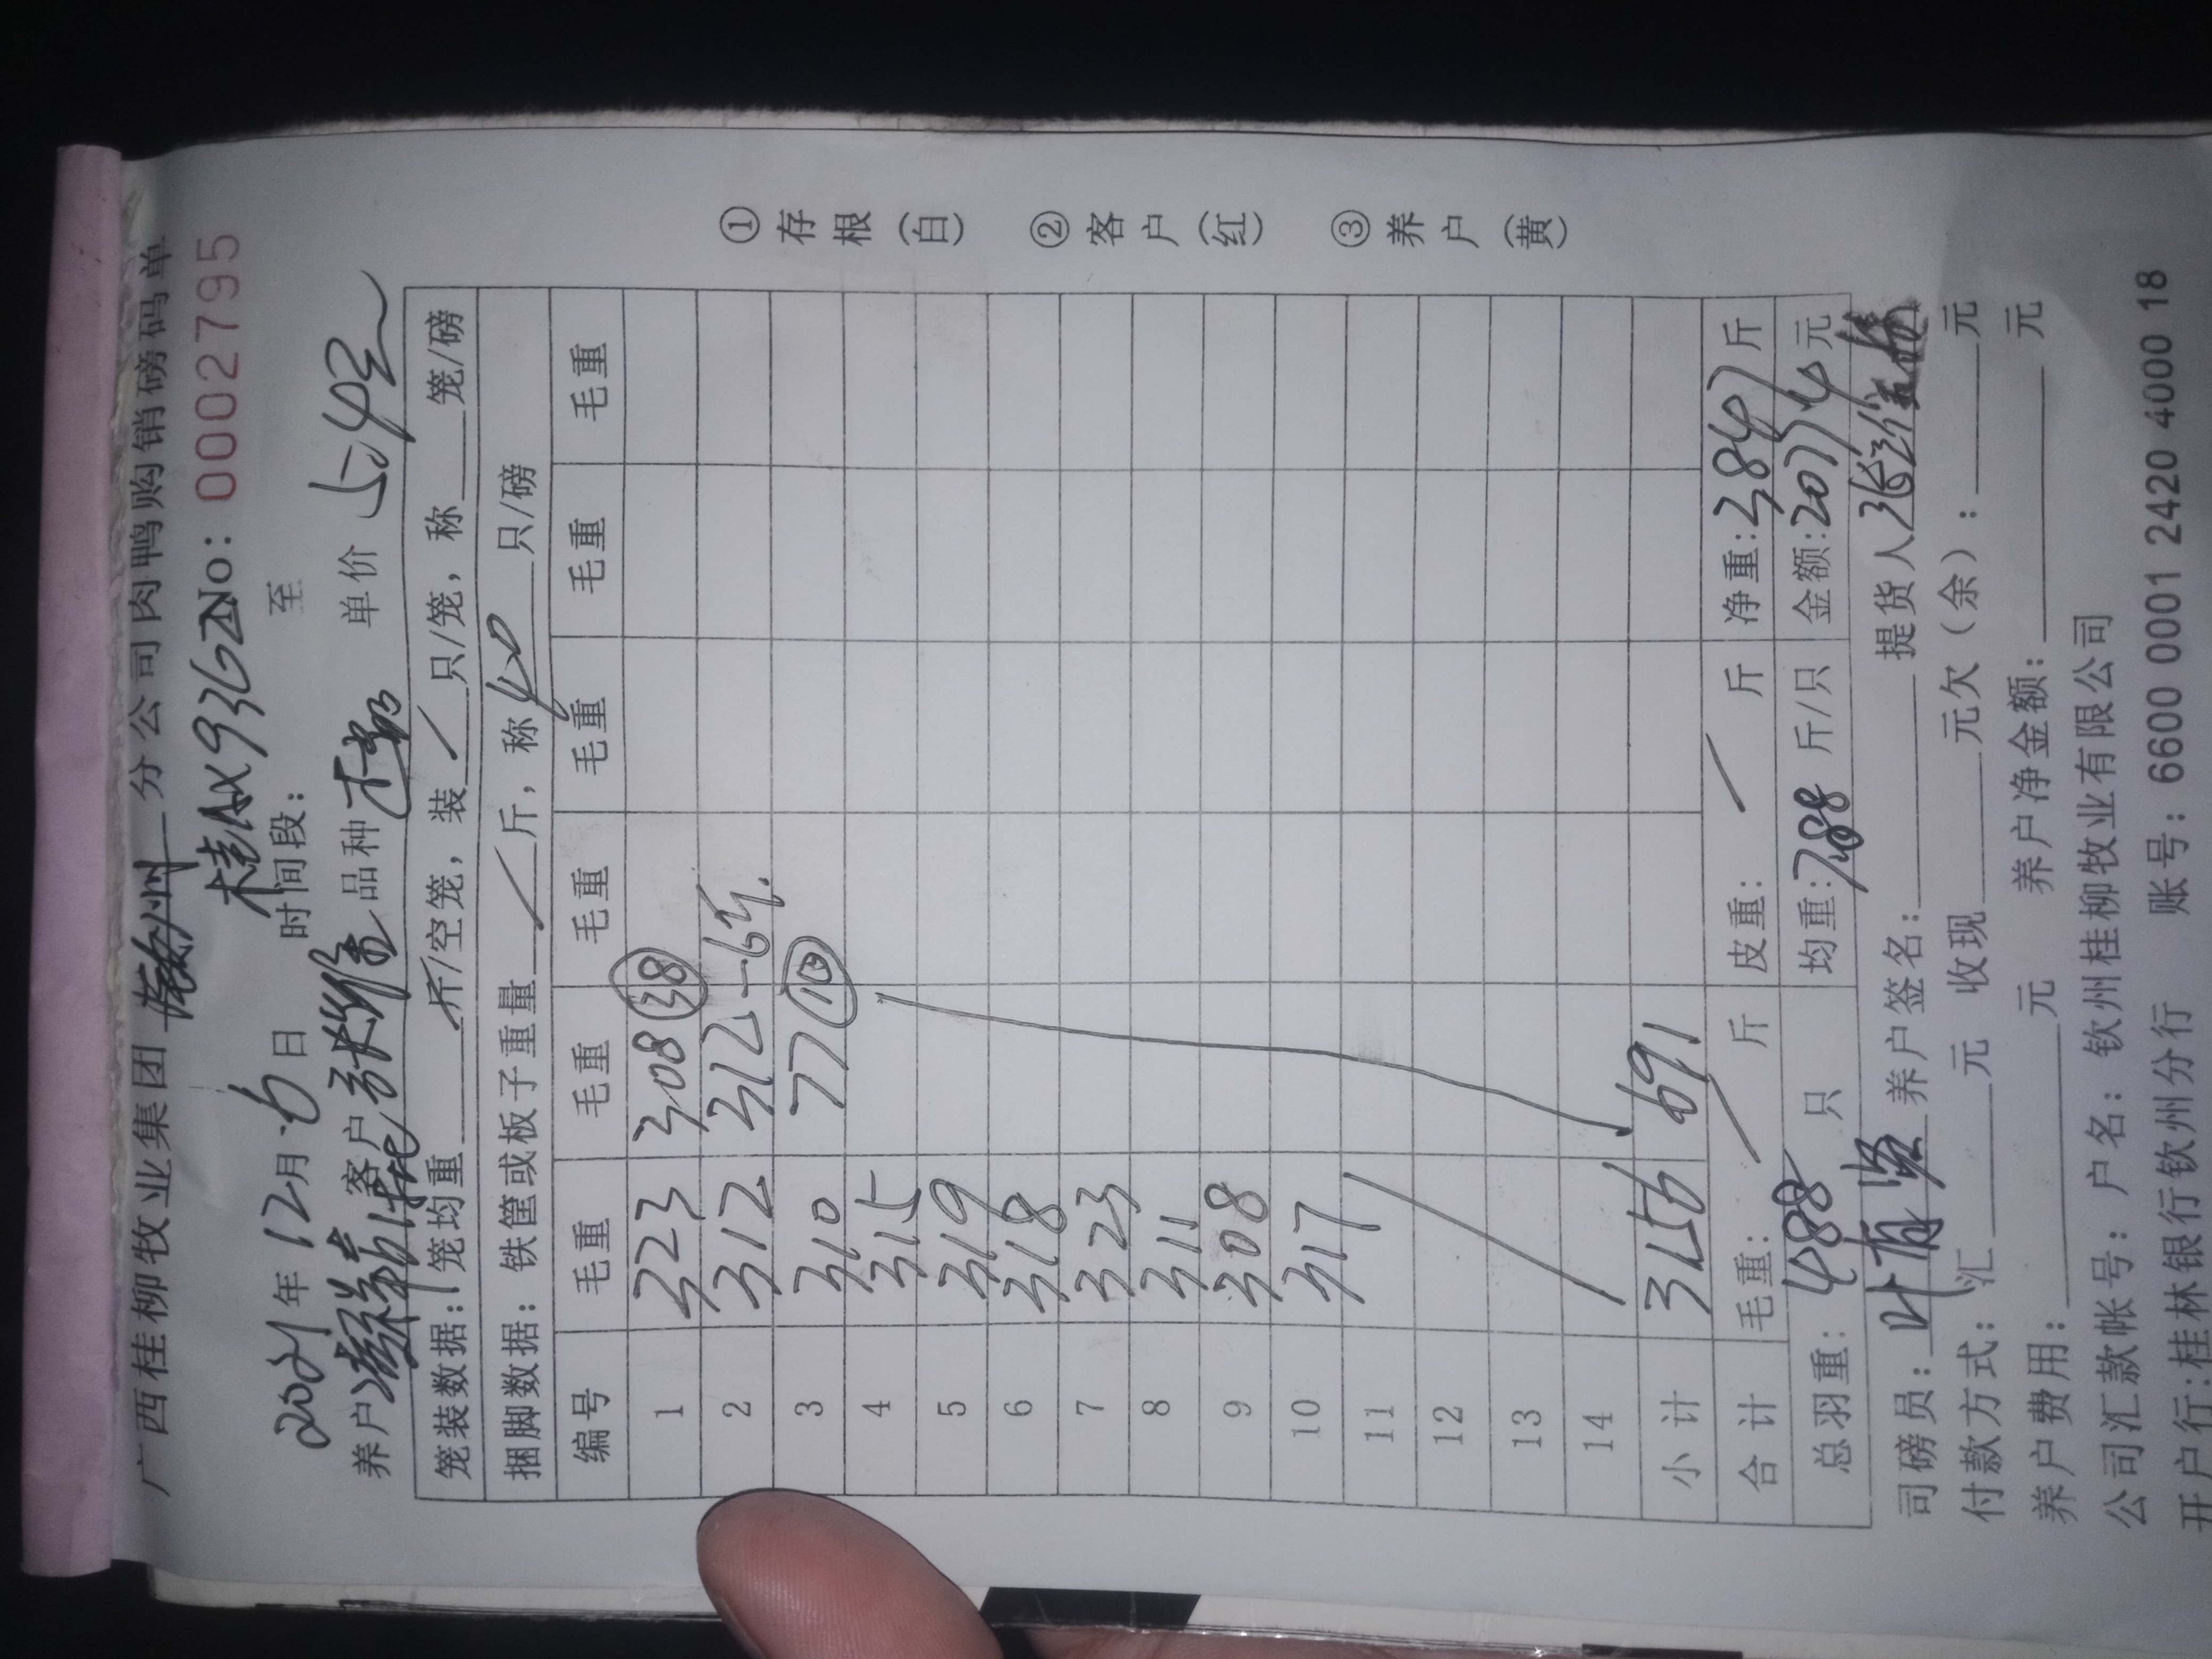 广西桂柳牧业集团 钦州 分公司肉鸭购销磅码单
桂AX9362 No: 0002795
2021年12月6日 时间段: 至
养户 客户 品种 单价 5.4元
笼装数据:1笼均重 斤/空笼,装 / 只/笼,称 笼/磅
捆脚数据:铁筐或板子重量 / 斤,称 40 只/磅
编号 毛重 毛重 毛重 毛重 毛重 毛重
1 323 308 (38)
2 312 312 -6斤.
3 310 77 (10)
4 315
5 319
6 318
7 323
8 311
9 308
10 317
11
12
13
14
小计 3156 691
合计 毛重: / 斤 皮重: / 斤 净重:3847斤
总羽重: 488 只 均重:7.88斤/只 金额:20774元
司磅员: 养户签名: 提货人
付款方式:汇 元 收现 元欠(余): 元
养户费用: 元 养户净金额: 元
公司汇款帐号:户名:钦州桂柳牧业有限公司
开户行:桂林银行钦州分行 账号:6600 0001 2420 4000 18
①存根(白) ②客户(红) ③养户(黄)